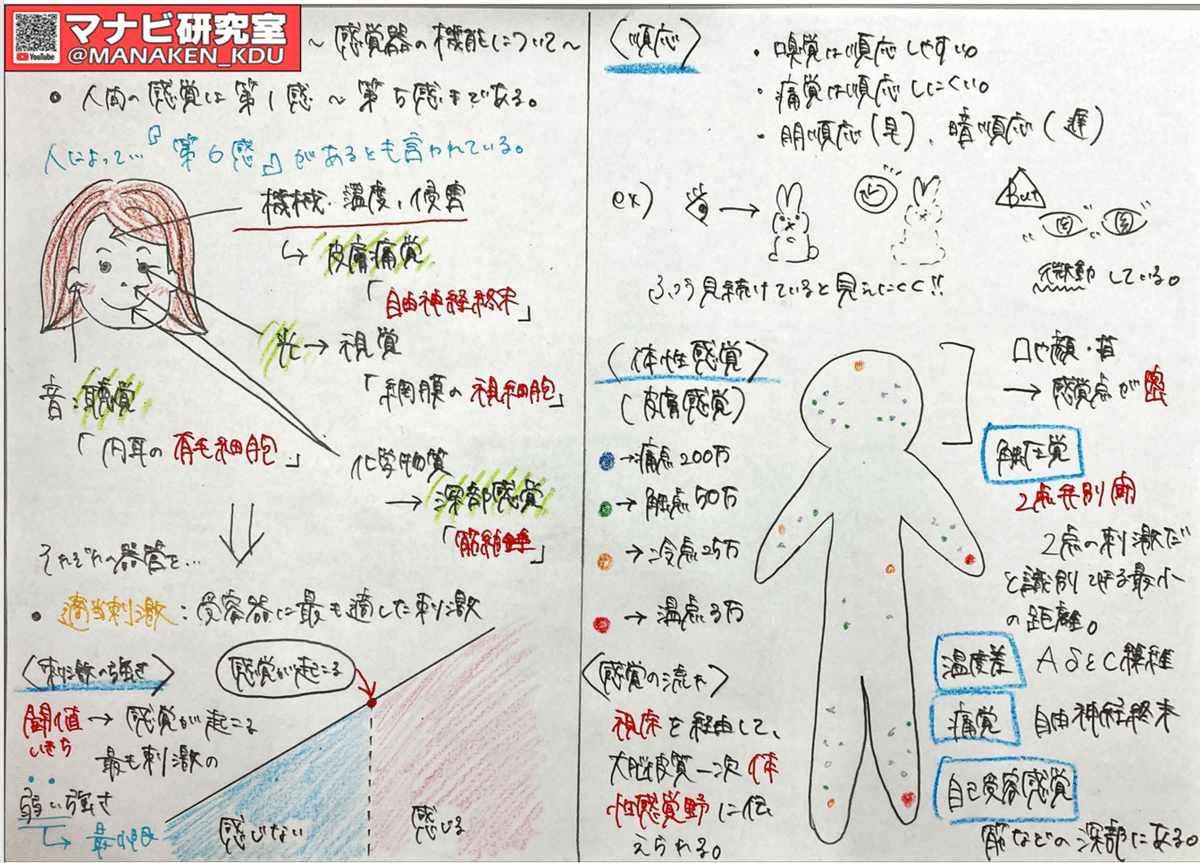 マナビ研究室
YouTube
@MANAKEN_KDU
～感覚器の機能について～
・人間の感覚は第1感～第5感まである。
人によって…『第6感』があるとも言われている。
機械・温度、侵害
↳ 皮膚痛覚
「自由神経終末」
光→視覚
「網膜の視細胞」
音：聴覚
「内耳の有毛細胞」
化学物質
→深部感覚
「筋紡錘」
それぞれの器官を…
・適当刺激：受容器に最も適した刺激
〈刺激の強さ〉
感覚が起こる
閾値→感覚が起こる
いきち
最も刺激の
弱い強さ
↳最小限
感じない
感じる
〈順応〉
・嗅覚は順応しやすい。
・痛覚は順応しにくい。
・明順応(早)、暗順応(遅)
ex)
But
ふつう見続けていると見えにくく!!
微動している。
〈体性感覚〉
(皮膚感覚)
→痛点200万
→触点50万
→冷点25万
→温点3万
口や顔・首
→感覚点が密
触圧覚
2点弁別閾
2点の刺激だ
と識別できる最小
の距離。
温度差 AδとC線維
痛覚 自由神経終末
自己受容感覚
筋などの深部にある。
〈感覚の流れ〉
視床を経由して、
大脳皮質一次体
性感覚野に伝
えられる。